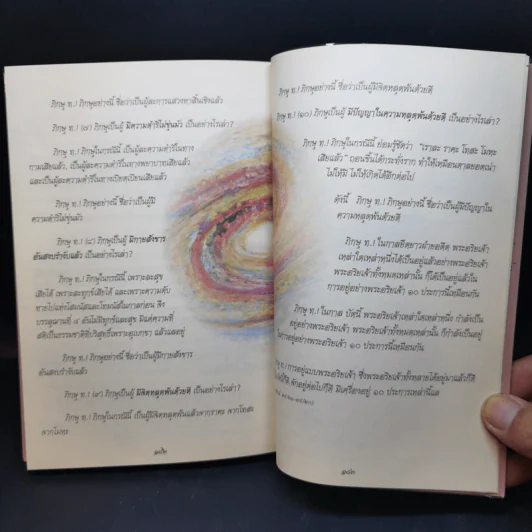 ภิกษุ ท.! ภิกษุอย่างนี้ ชื่อว่าเป็นผู้ละการแสวงหาสิ้นเชิงแล้ว
ภิกษุ ท.! (๗) ภิกษุเป็นผู้ มีความดำริไม่ขุ่นมัว เป็นอย่างไรเล่า?
ภิกษุ ท.! ภิกษุในกรณีนี้ เป็นผู้ละความดำริในทาง
กามเสียแล้ว, เป็นผู้ละความดำริในทางพยาบาทเสียแล้ว
และเป็นผู้ละความดำริในทางเบียดเบียนเสียแล้ว
ภิกษุ ท.! ภิกษุอย่างนี้ ชื่อว่าเป็นผู้มี
ความดำริไม่ขุ่นมัว
ภิกษุ ท.! (๘) ภิกษุเป็นผู้ มีกายสังขาร
อันสงบรำงับแล้ว เป็นอย่างไรเล่า?
ภิกษุ ท.! ภิกษุในกรณีนี้ เพราะละสุข
เสียได้ เพราะละทุกข์เสียได้ และเพราะความดับ
หายไปแห่งโสมนัสและโทมนัสในกาลก่อน จึง
บรรลุฌานที่ ๔ อันไม่มีทุกข์และสุข มีแต่ความที่
สติเป็นธรรมชาติที่บริสุทธิ์เพราะอุเบกขา แล้วแลอยู่
ภิกษุ ท.! ภิกษุอย่างนี้ ชื่อว่าเป็นผู้มีกายสังขาร
อันสงบรำงับแล้ว
ภิกษุ ท.! (๙) ภิกษุเป็นผู้ มีจิตหลุดพ้นด้วยดี เป็นอย่างไรเล่า?
ภิกษุ ท.! ภิกษุในกรณีนี้ เป็นผู้มีจิตหลุดพ้นแล้วจากราคะ จากโทสะ
จากโมหะ
ภิกษุ ท.! ภิกษุอย่างนี้ ชื่อว่าเป็นผู้มีจิตหลุดพ้นด้วยดี
ภิกษุ ท.! (๑๐) ภิกษุเป็นผู้ มีปัญญาในความหลุดพ้นด้วยดี เป็นอย่างไรเล่า?
ภิกษุ ท.! ภิกษุในกรณีนี้ ย่อมรู้ชัดว่า "เราละ ราคะ โทสะ โมหะ
เสียแล้ว" ถอนขึ้นได้กระทั่งราก ทำให้เหมือนตาลยอดเน่า
ไม่ให้มี ไม่ให้เกิดได้อีกต่อไป
ดังนี้ ภิกษุ ท.! ภิกษุอย่างนี้ ชื่อว่าเป็นผู้มีปัญญาใน
ความหลุดพ้นด้วยดี
ภิกษุ ท.! ในกาลยืดยาวฝ่ายอดีต พระอริยเจ้า
เหล่าใดเหล่าหนึ่งได้เป็นอยู่แล้วอย่างพระอริยเจ้า
พระอริยเจ้าทั้งหมดเหล่านั้น ก็ได้เป็นอยู่แล้วใน
การอยู่อย่างพระอริยเจ้า ๑๐ ประการนี้เหมือนกัน
ภิกษุ ท.! ในกาล บัดนี้ พระอริยเจ้าเหล่าใดเหล่าหนึ่ง กำลังเป็น
อยู่อย่างพระอริยเจ้า พระอริยเจ้าทั้งหมดเหล่านั้น ก็กำลังเป็นอยู่
ในการอยู่อย่างพระอริยเจ้า ๑๐ ประการนี้เหมือนกัน
ท.! การอยู่แบบพระอริยเจ้า ซึ่งพระอริยเจ้าทั้งหลายอยู่มาแล้วก็ดี
อยู่ต่อไปก็ดี มีเครื่องอยู่ ๑๐ ประการเหล่านี้แล